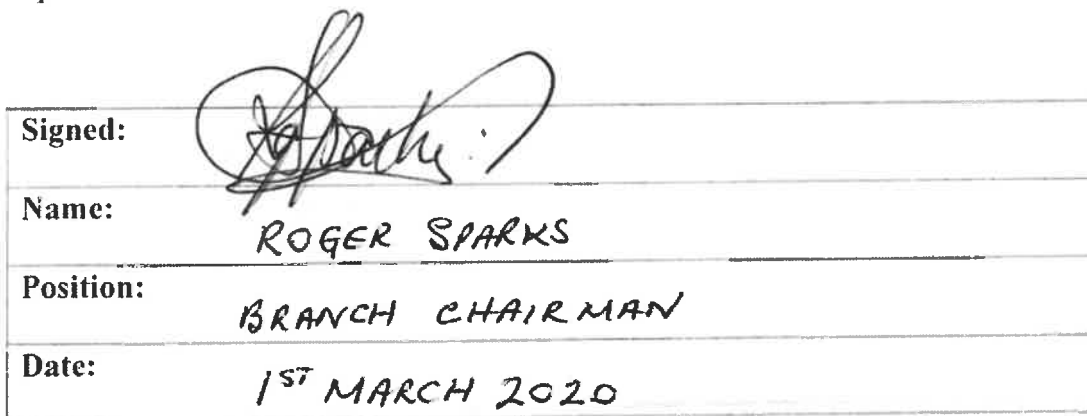 Signed:
Name: ROGER SPARKS
Position: BRANCH CHAIRMAN
Date: 1ST MARCH 2020